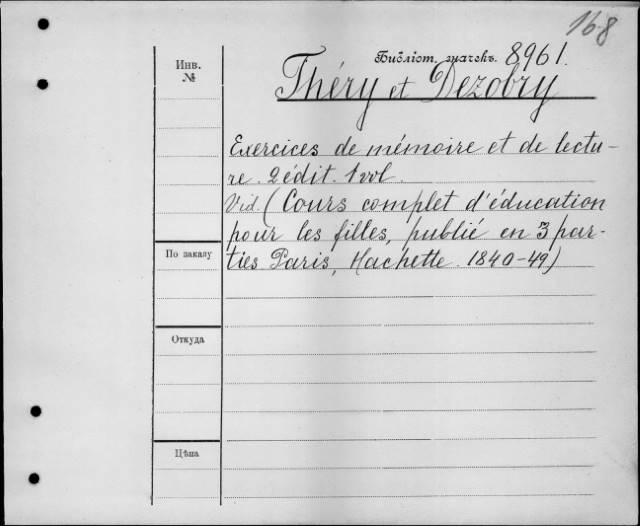 168
Библіот. значекъ. 8961.
Инв.
№
Théry et Dezobry
Exercices de mémoire et de lectu-
re. 2 édit. 1 vol.
Vid. (Cours complet d'éducation
pour les filles, publié en 3 par-
По заказу
ties. Paris, Hachette. 1840-49)
Откуда
Цѣна